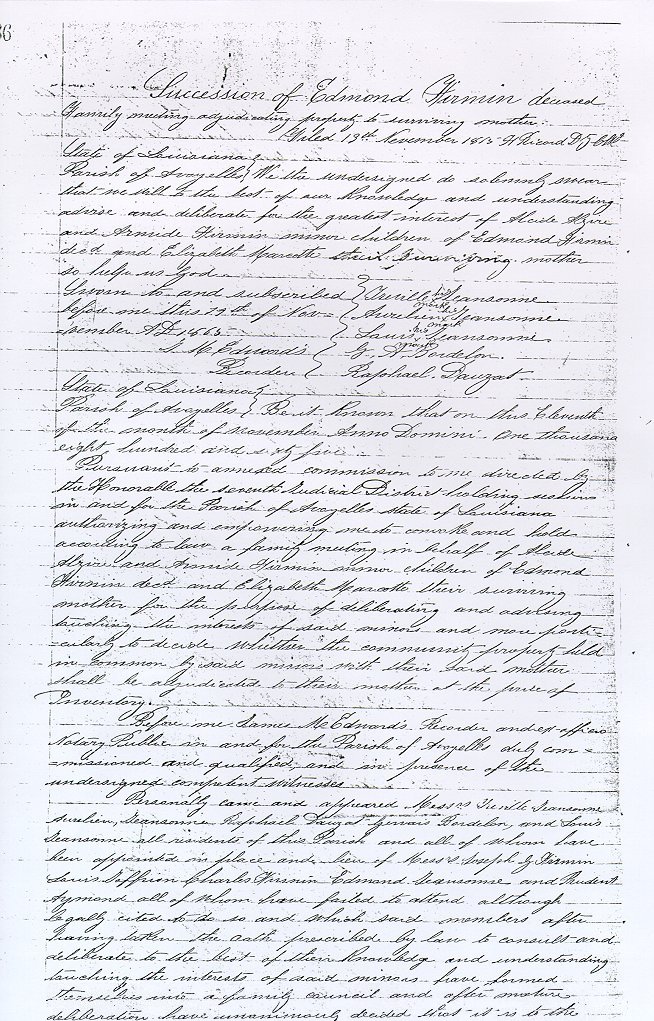 36
Succession of Edmond Firmin deceased
Family meeting adjudicating property to surviving mother
Filed 13th November 1865 Ricord Dy Clk
State of Louisiana
Parish of Avoyelles We the undersigned do solemnly swear
that we will to the best of our Knowledge and understanding
advise and deliberate for the greatest interest of Alcide Alzire
and Armide Firmin minor children of Edmond Firmin
decd and Elizabeth Marcotte their surviving mother
so help us God
Sworn to and subscribed Treville his mark Jeansonne
before me this 29th of Nov= Aurelien his mark Jeansonne
=vember AD. 1865 Louis his mark Jeansonne
M. Edwards G. A. Bordelon
Recorder Raphael Dauzat
State of Louisiana
Parish of Avoyelles Be it Known that on this Eleventh
of the month of November Anno Domini One thousand
eight hundred and sixty five
Pursuant to annexed commission to me directed by
the Honorable the seventh Judicial District holding session
in and for the Parish of Avoyelles state of Louisiana
authorizing and empowering me to convoke and hold
according to law a family meeting in behalf of Alcide
Alzire and Armide Firmin minor children of Edmond
Firmin decd and Elizabeth Marcotte their surviving
mother for the purpose of deliberating and advising
touching the interests of said minors and more parti=
=cularly to decide whether the community property held
in common by said minors with their said mother
shall be adjudicated to their mother at the price of
Inventory.
Before me James M Edwards Recorder and ex-officio
Notary Public in and for the Parish of Avoyelles duly com=
=missioned and qualified, and in presence of the
undersigned competent witnesses
Personally came and appeared Messrs Treville Jeansonne
Aurelien Jeansonne Raphael Dauzat Gervais Bordelon, and Louis
Jeansonne all residents of this Parish and all of whom have
been appointed in place and lieu of Messrs Joseph G Firmin
Louis Juffrion Charles Firmin Edmond Jeansonne and Prudent
Aymond all of whom have failed to attend although
legally cited to do so and which said members after
having taken the oath prescribed by law to consult and
deliberate to the best of their Knowledge and understanding
touching the interests of said minors have formed
themselves into a family council and after mature
deliberation have unanimously decided that it is to the